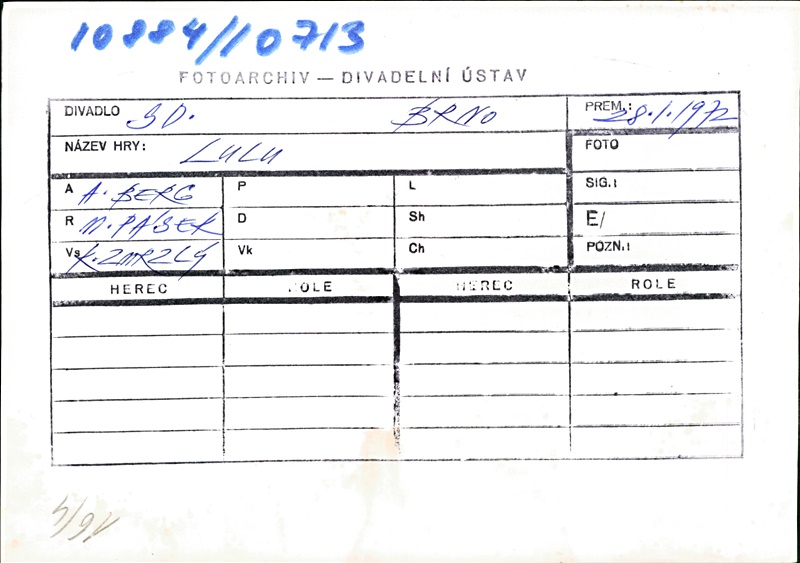 10884/10713
FOTOARCHIV — DIVADELNÍ ÚSTAV
DIVADLO SD. BRNO PREM.: 28.1.1972
NÁZEV HRY: LULU FOTO
A A. BERG P L SIG.:
R M. PÁSEK D Sh E/
Vs K. ZMRZLÝ Vk Ch POZN.:
HEREC ROLE HEREC ROLE
16/4